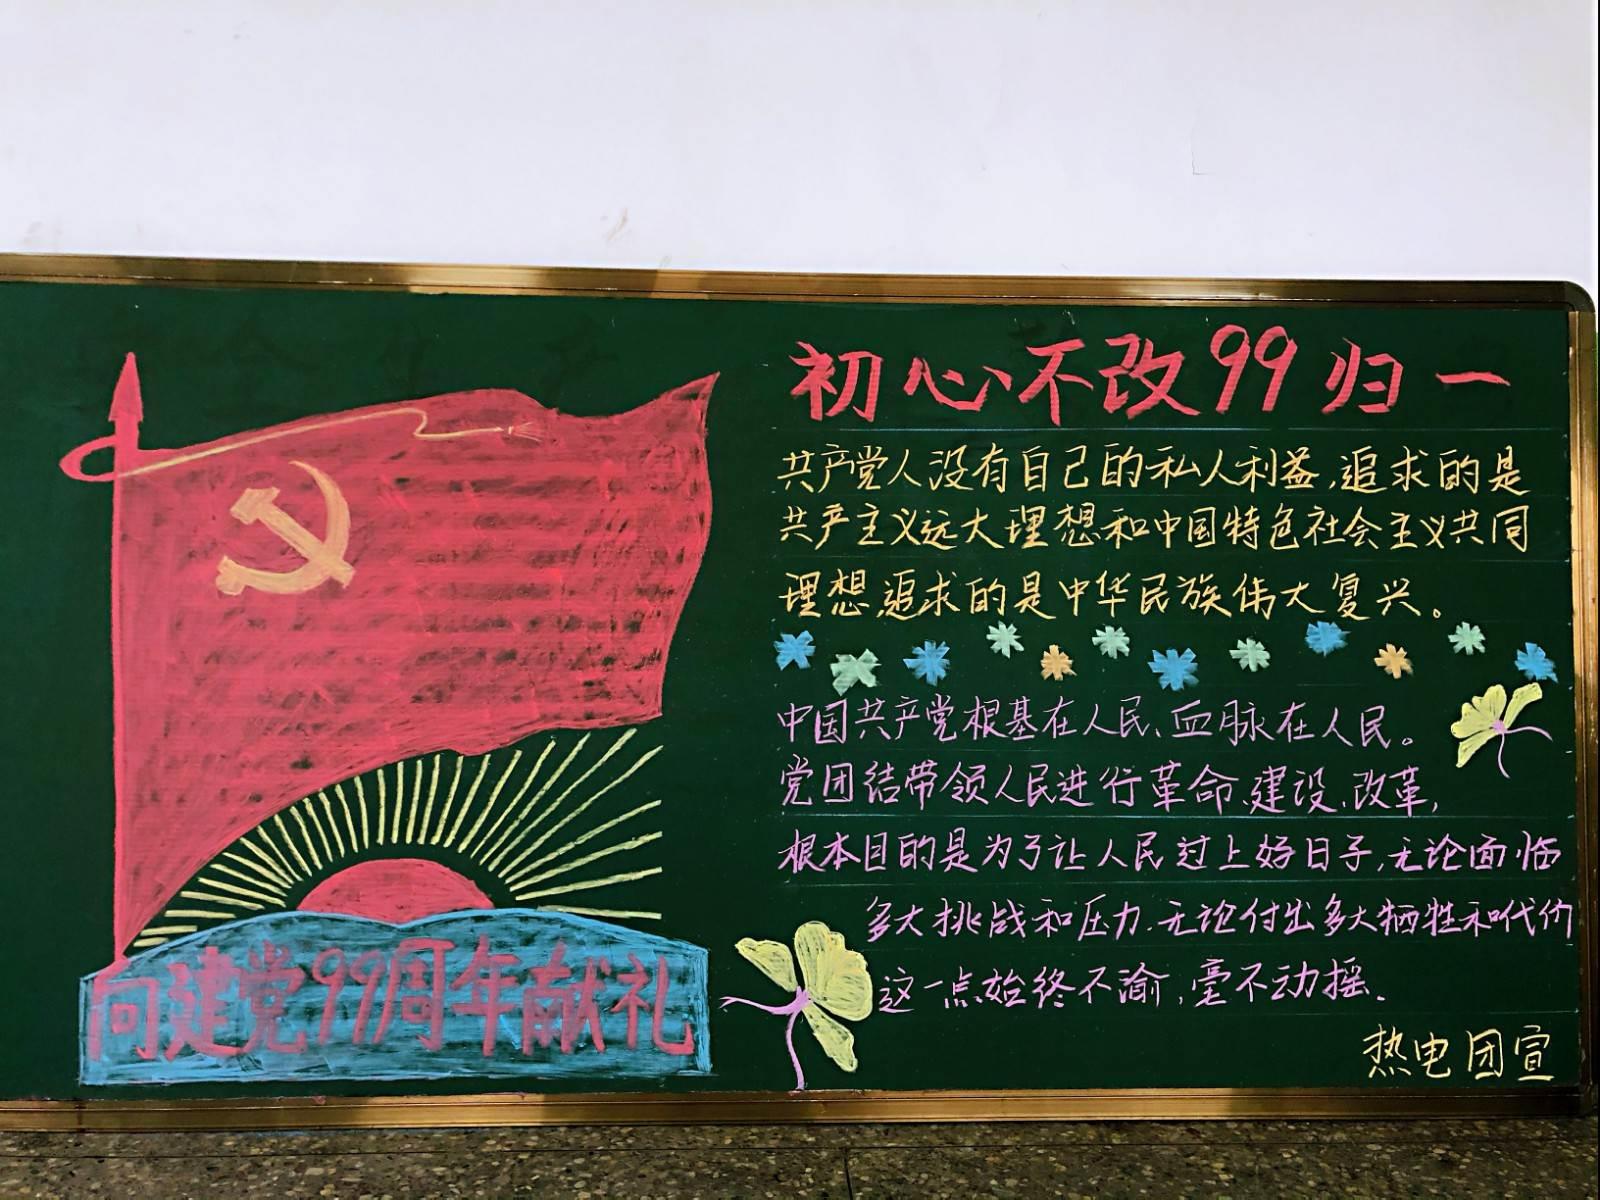 初心不改99归一
共产党人没有自己的私人利益,追求的是
共产主义远大理想和中国特色社会主义共同
理想,追求的是中华民族伟大复兴。
中国共产党根基在人民、血脉在人民。
党团结带领人民进行革命、建设、改革,
根本目的是为了让人民过上好日子,无论面临
多大挑战和压力、无论付出多大牺牲和代价
这一点始终不渝,毫不动摇.
热电团宣
向建党99周年献礼